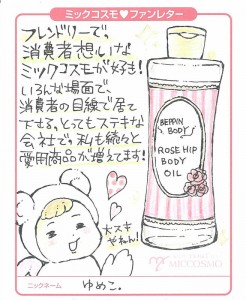 ミックコスモ♥ファンレター
フレンドリーで、
消費者想いな
ミックコスモが好き!
いろんな場面で、
消費者の目線で居て
下さる。とってもステキな
会社で。私も続々と
愛用商品が増えてます!
BEPPIN
BODY
ROSE HIP
BODY
OIL
大スキ
やねん!
MICCOSMO
ニックネーム
ゆめこ。